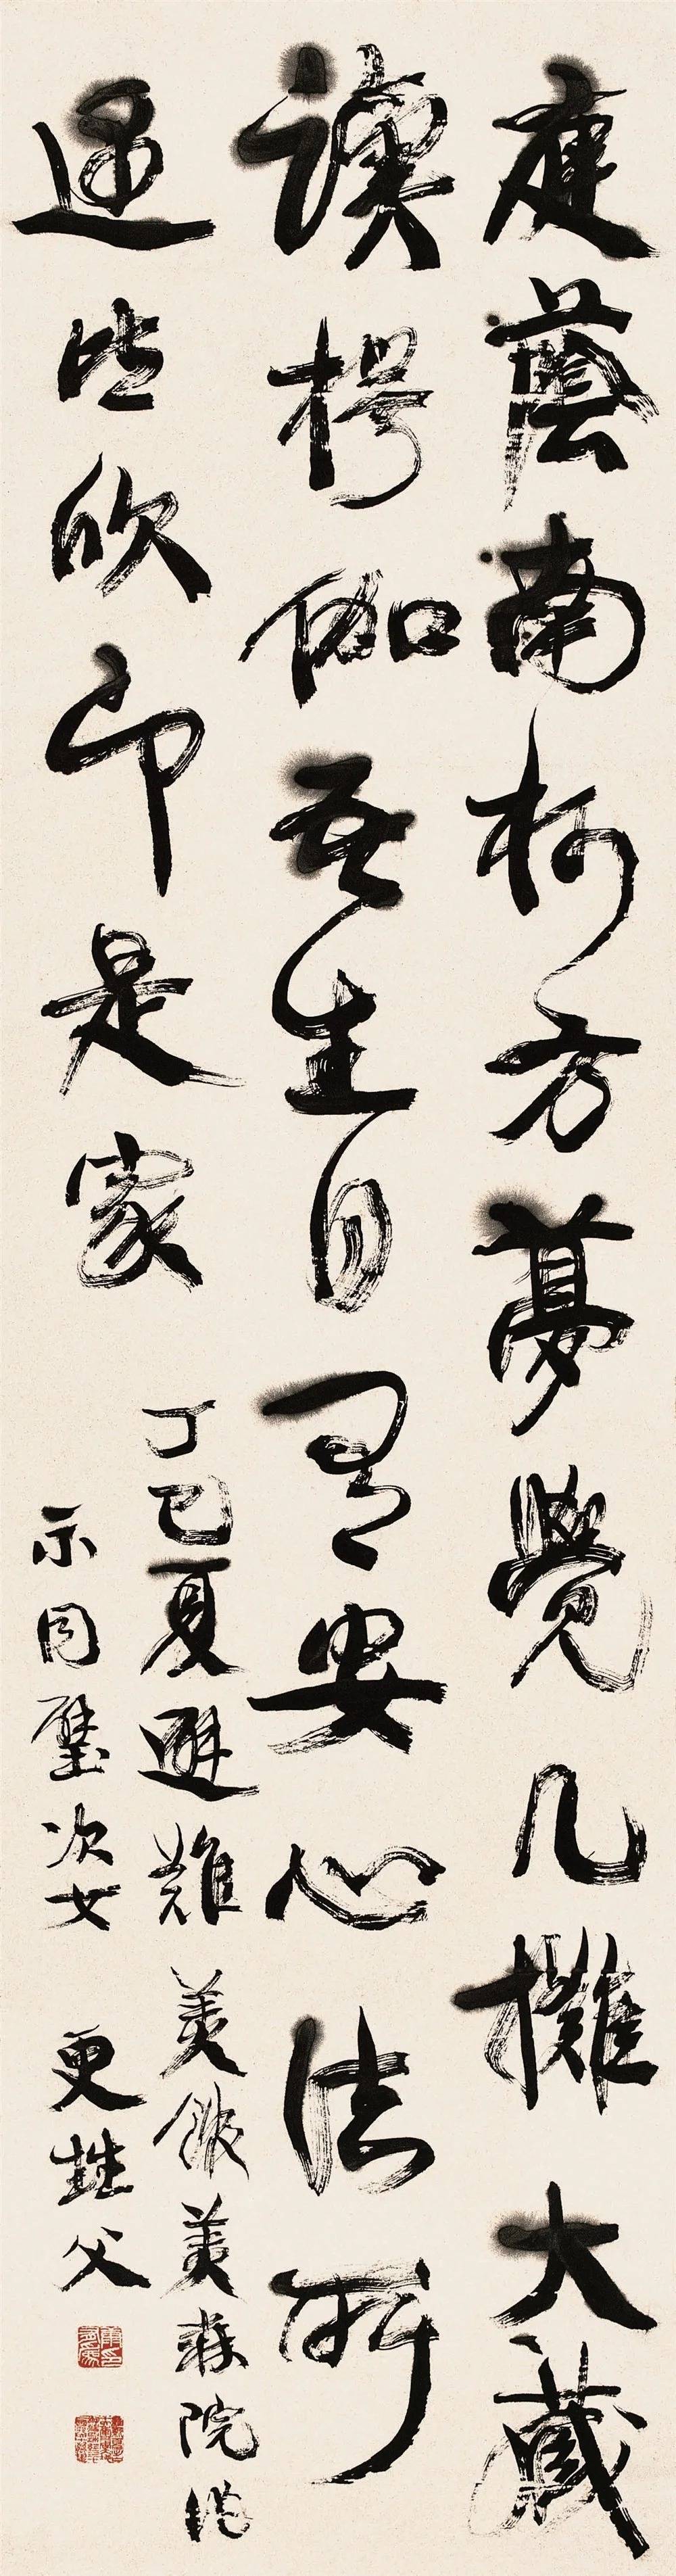 庭蔭南柯方夢覺几攤大藏
讀楞伽吾生自有安心法所
遇皆欣即是家
丁巳夏避難美館美森院
示同璧次女 更甡父